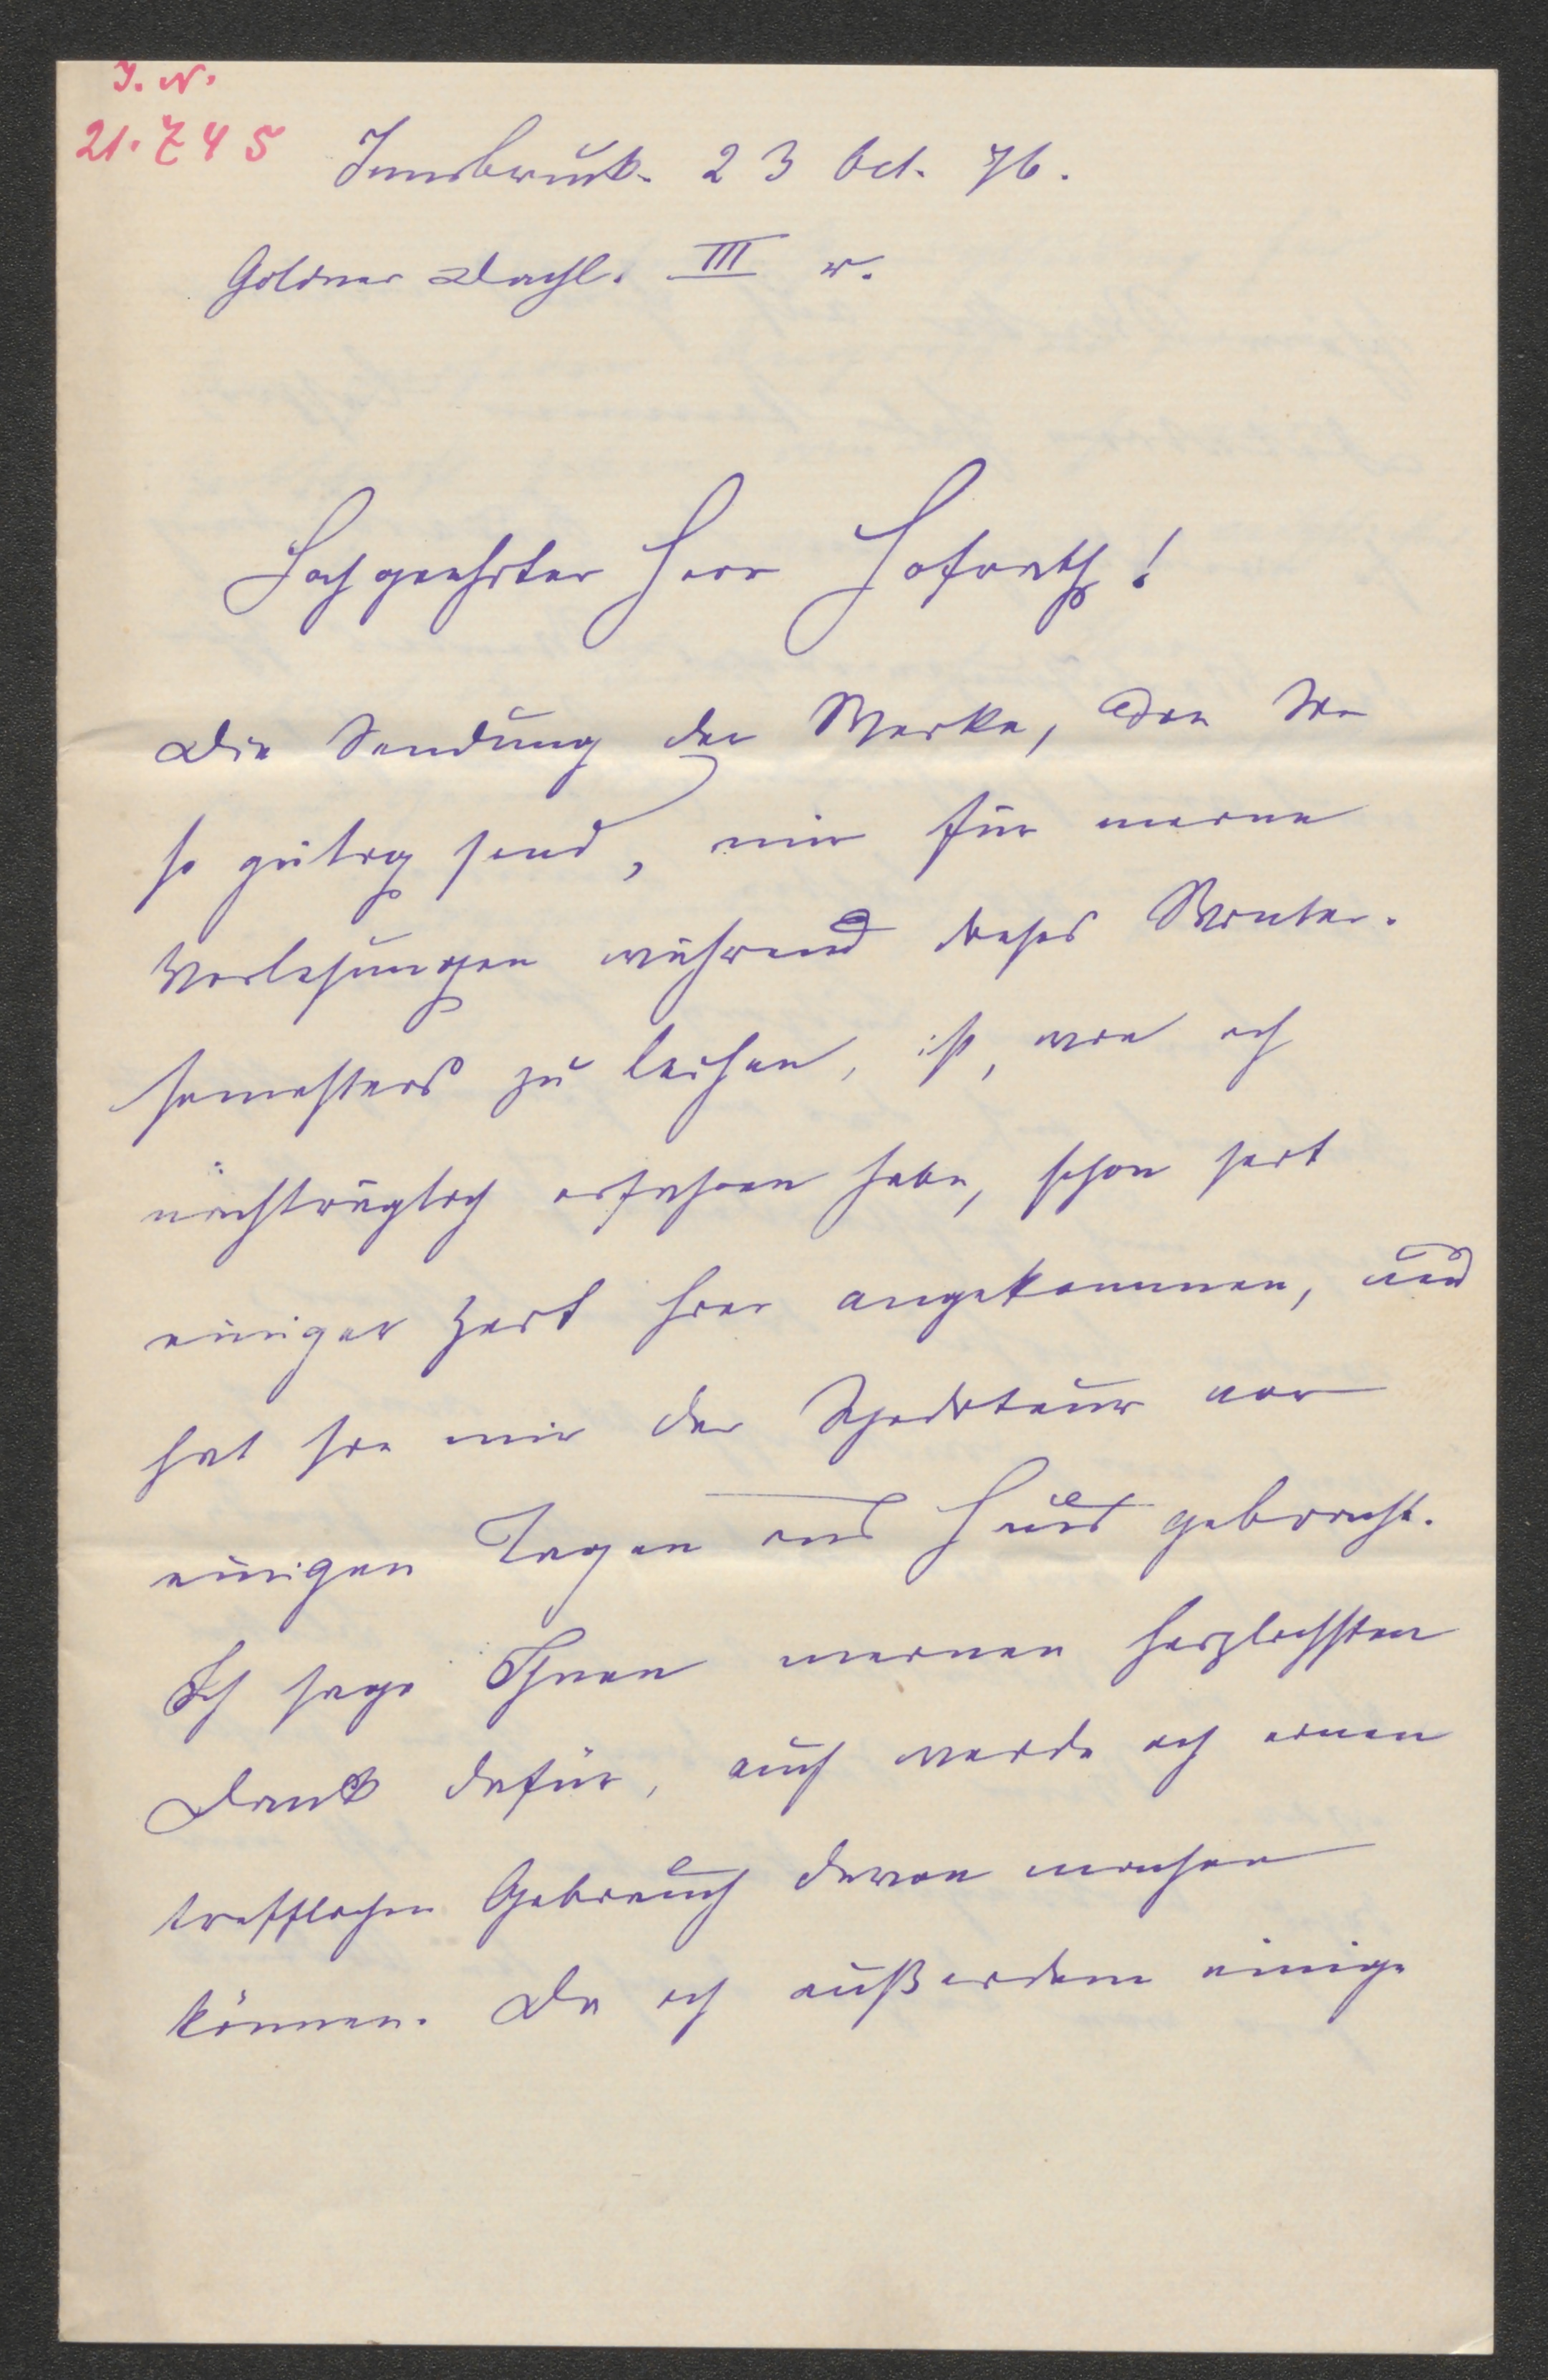 I. N.
21.745
Innsbruck. 23 Oct. 76.
Goldnes Dachl. III r.
Hochgeehrter Herr Hofrath!
Die Sendung der Werke, die Sie
so gütig sind, mir für meine
Vorlesungen während dieses Winter-
semesters zu leihen, ist, wie ich
nachträglich erfahren habe, schon seit
einiger Zeit hier angekommen, und
hat sie mir der Spediteur vor
einigen Tagen ins Haus gebracht.
Ich sage Ihnen meinen herzlichsten
Dank dafür, auch werde ich einen
trefflichen Gebrauch davon machen
können. Da ich außerdem einige